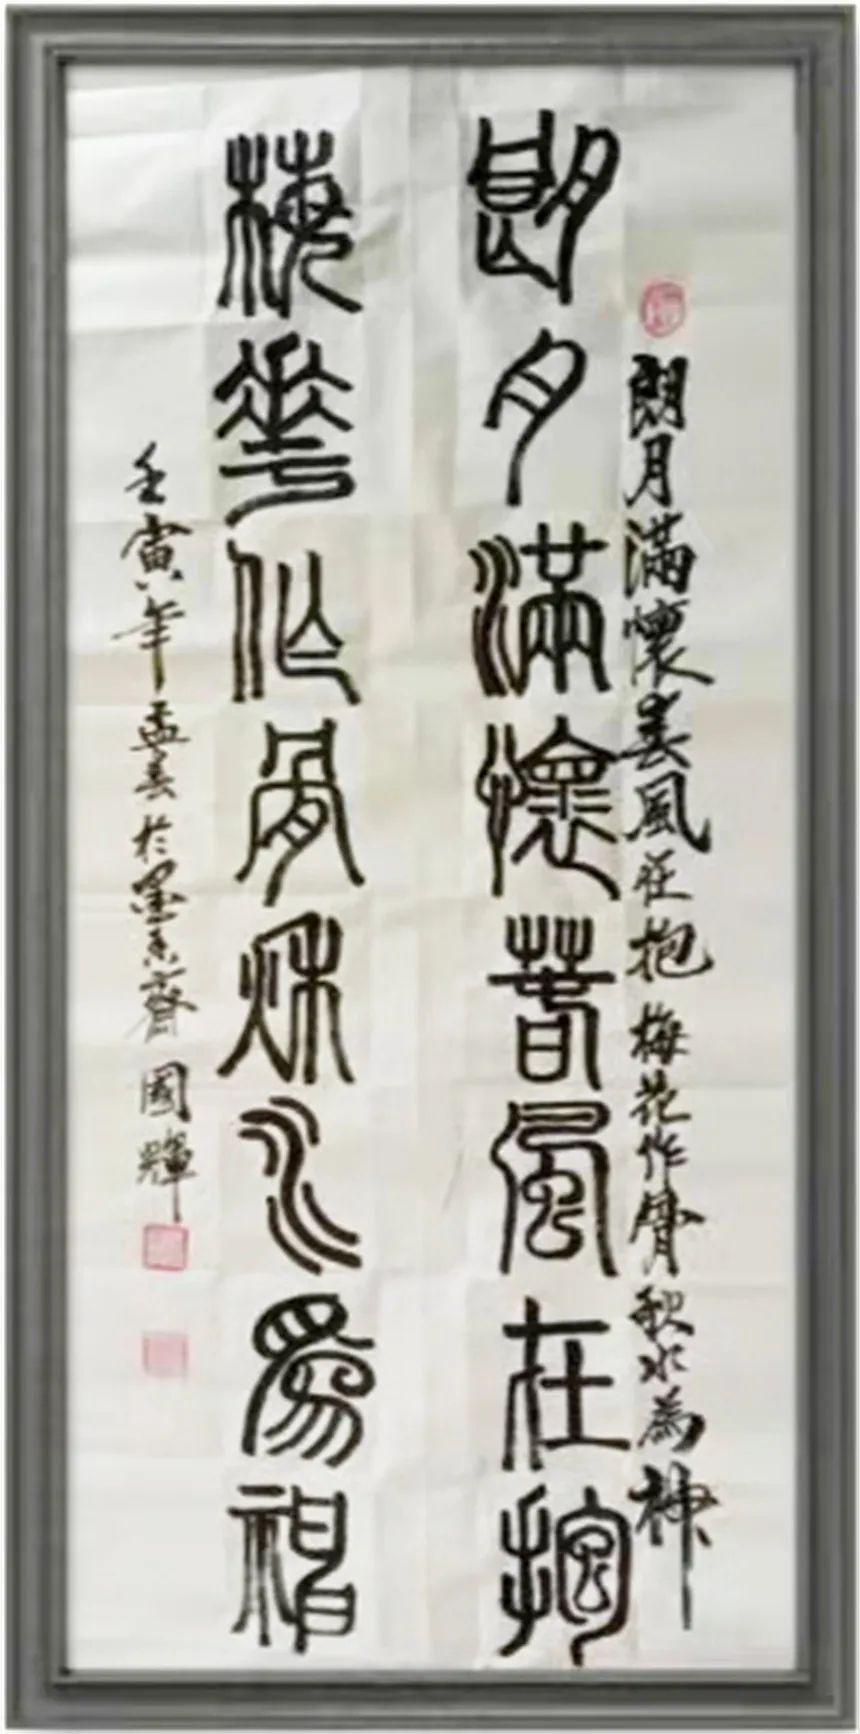 朗月滿懷春風在抱梅花作骨秋水為神
朗月滿懷春風在抱
梅華作骨秋水為神
壬寅年孟春於墨香齋國輝